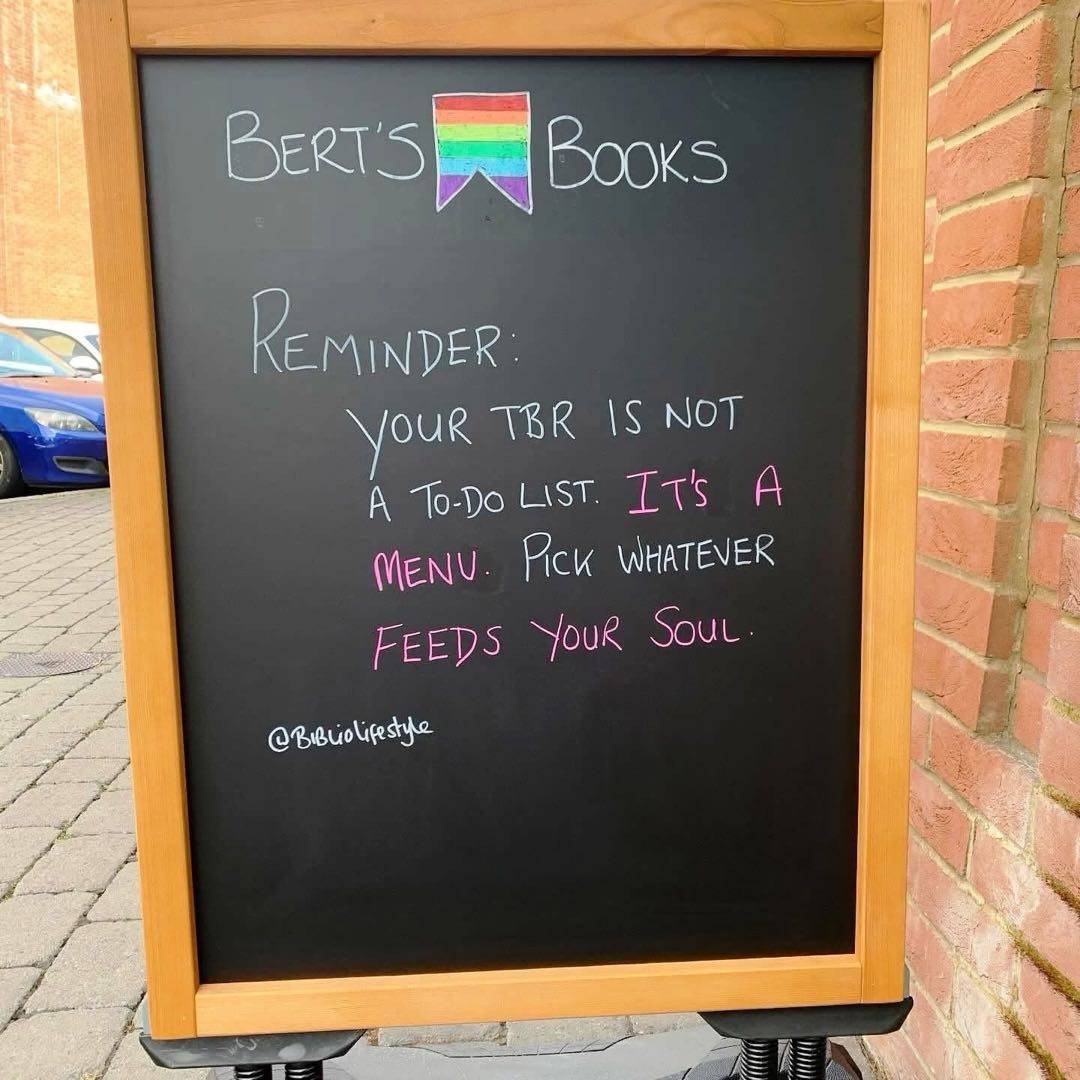 BERT'S BOOKS
REMINDER:
YOUR TBR IS NOT
A TO-DO LIST. IT'S A
MENU. PICK WHATEVER
FEEDS YOUR SOUL.
@BIBLIOLIFESTYLE